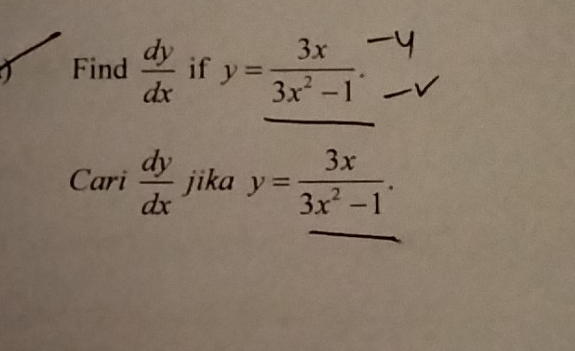 Find dy/dx if y = 3x/(3x² − 1). −u −v
Cari dy/dx jika y = 3x/(3x² − 1).